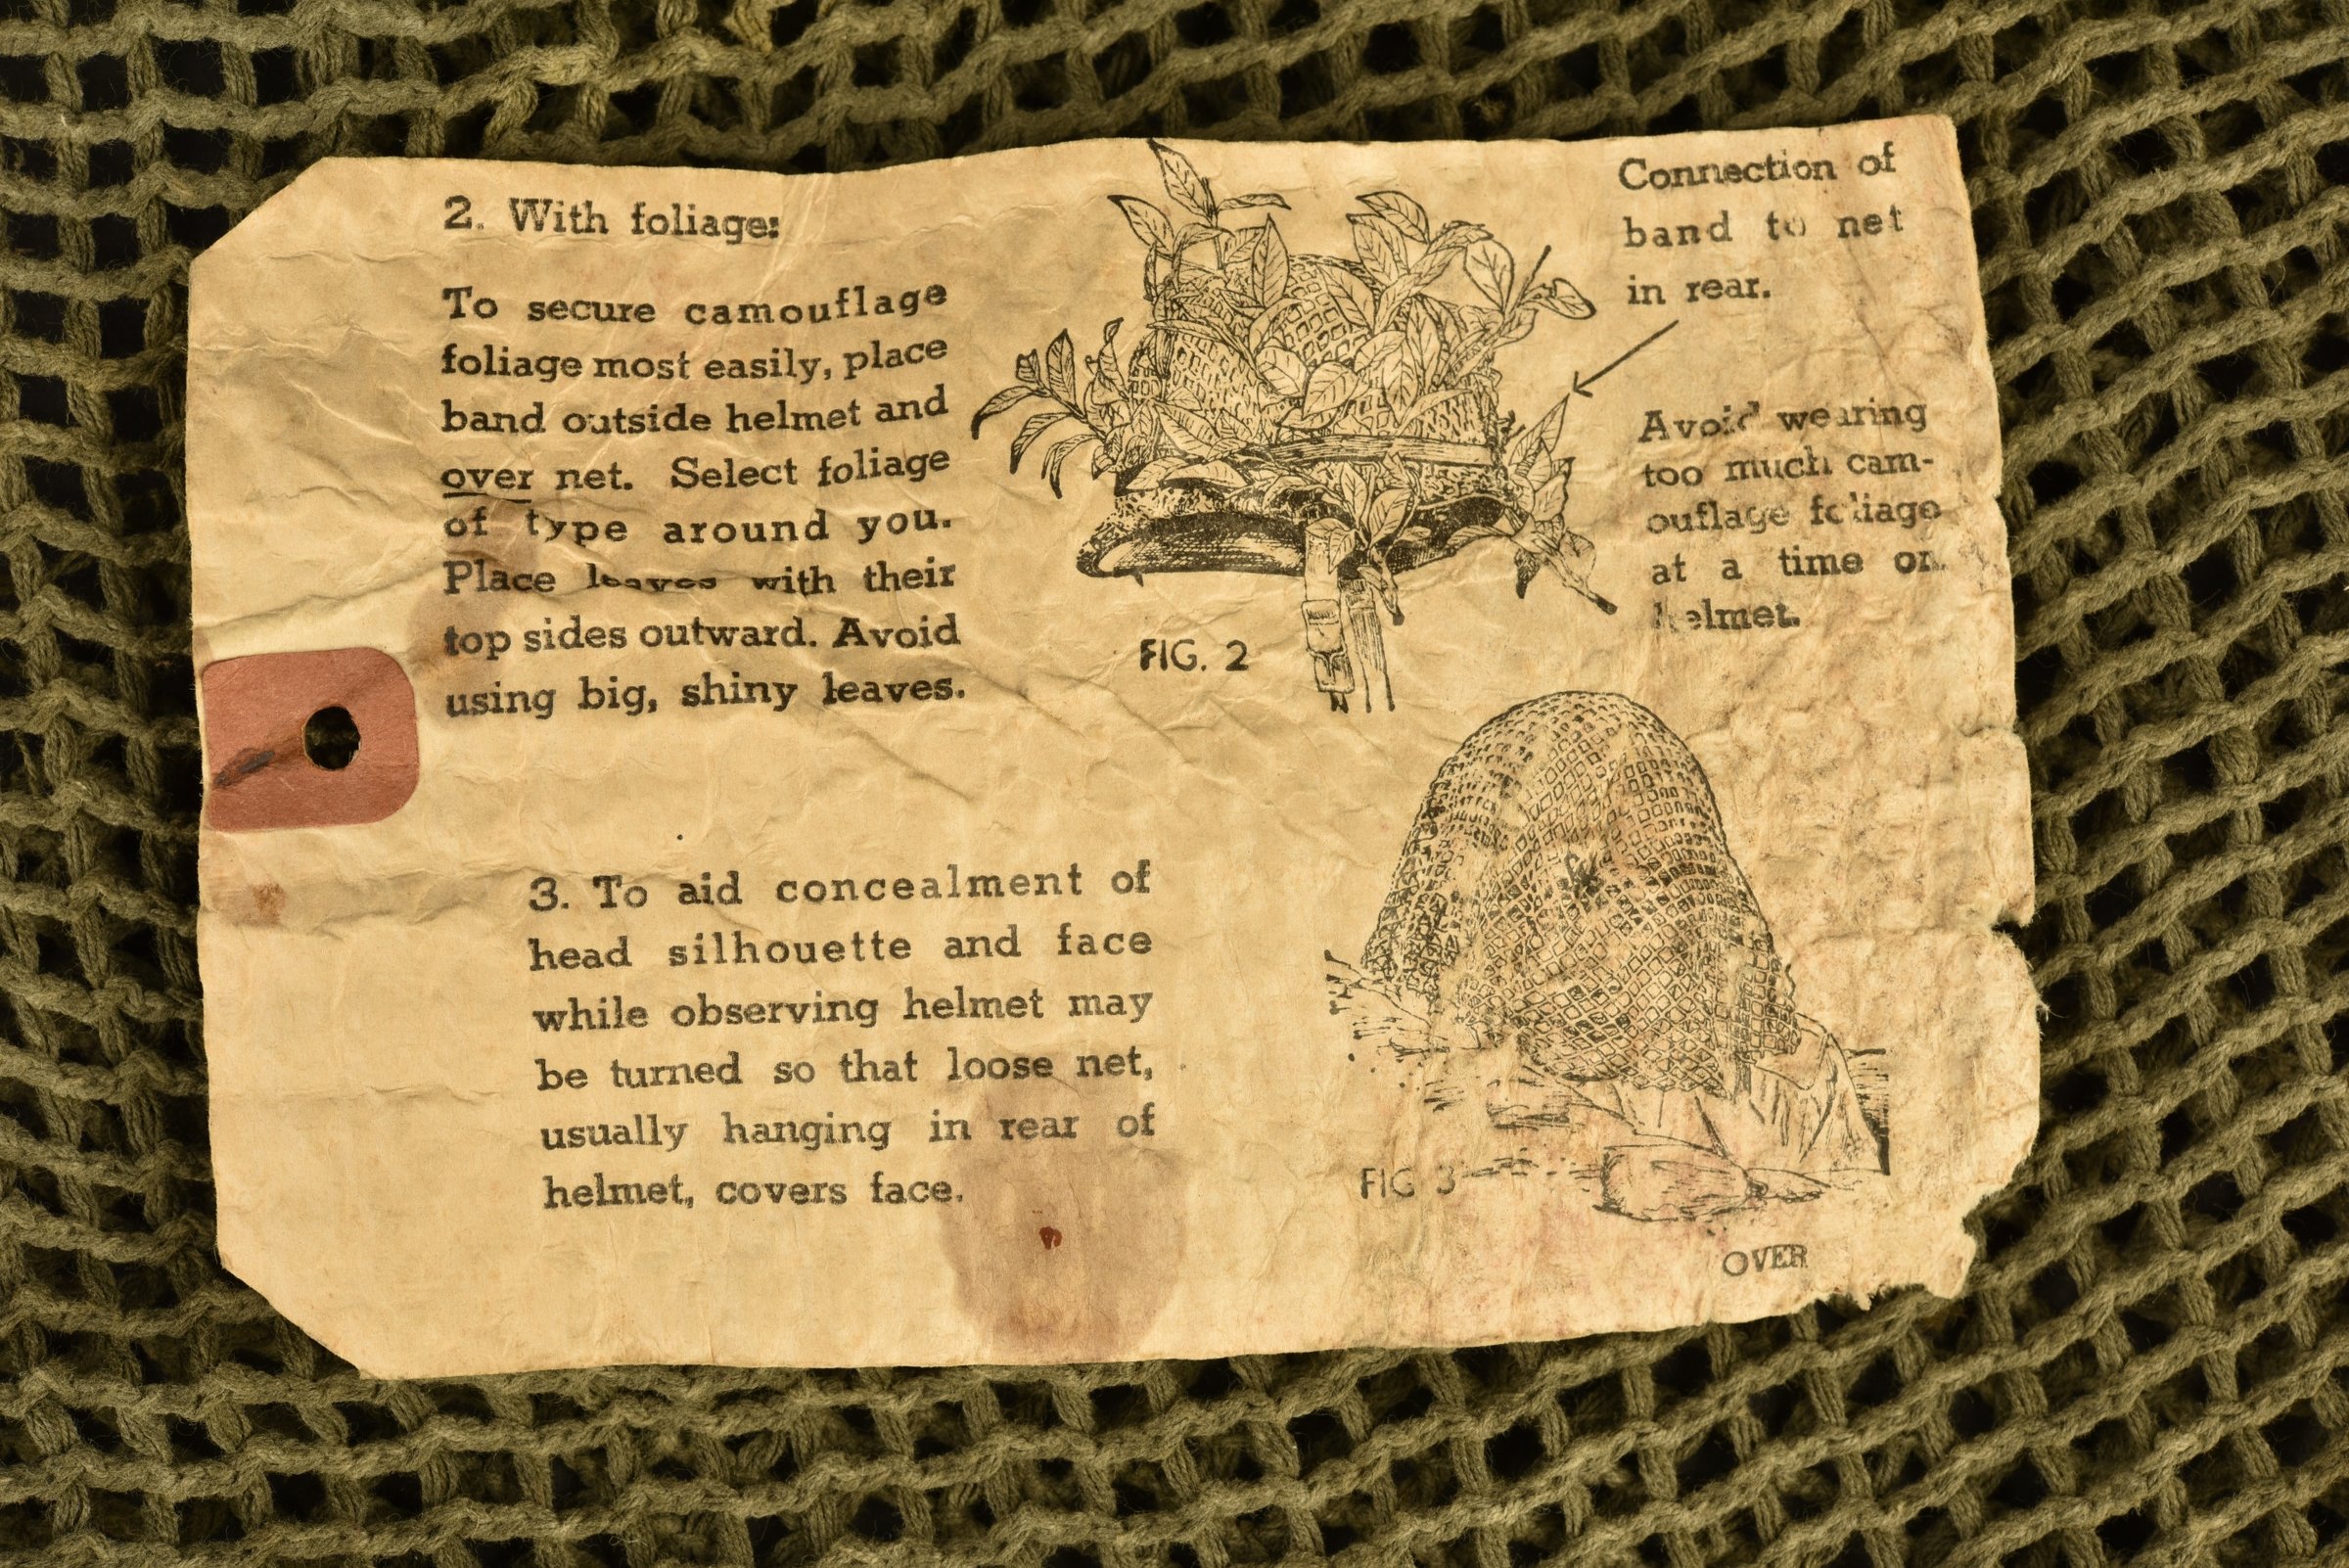 2. With foliage:
To secure camouflage
foliage most easily, place
band outside helmet and
over net. Select foliage
of type around you.
Place leaves with their
top sides outward. Avoid
using big, shiny leaves.
Connection of
band to net
in rear.
Avoid wearing
too much cam-
ouflage foliage
at a time on
helmet.
FIG. 2
3. To aid concealment of
head silhouette and face
while observing helmet may
be turned so that loose net,
usually hanging in rear of
helmet, covers face.
FIG 3
OVER